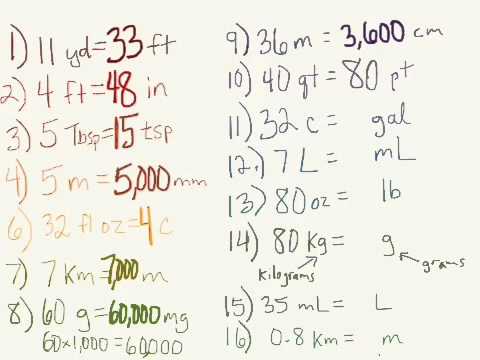 1) 11 yd = 33 ft
2) 4 ft = 48 in
3) 5 Tbsp = 15 tsp
4) 5 m = 5,000 mm
6) 32 fl oz = 4 c
7) 7 km = 7,000 m
8) 60 g = 60,000 mg
60 × 1,000 = 60,000
9) 36 m = 3,600 cm
10) 40 qt = 80 pt
11) 32 c = gal
12.) 7 L = mL
13) 80 oz = lb
14) 80 kg = g
kilograms grams
15) 35 mL = L
16) 0.8 km = m